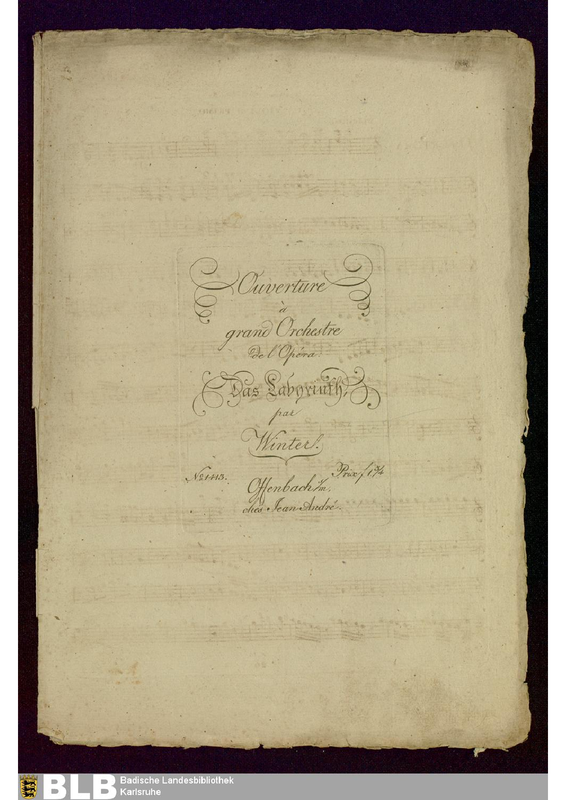 Ouverture
à
grand Orchestre
de l'Opéra.
Das Labyrinth,
par
Winter.
No. 1413.
Prix f 1 3/4
Offenbach s/m,
chés Jean André.
BLB Badische Landesbibliothek
Karlsruhe